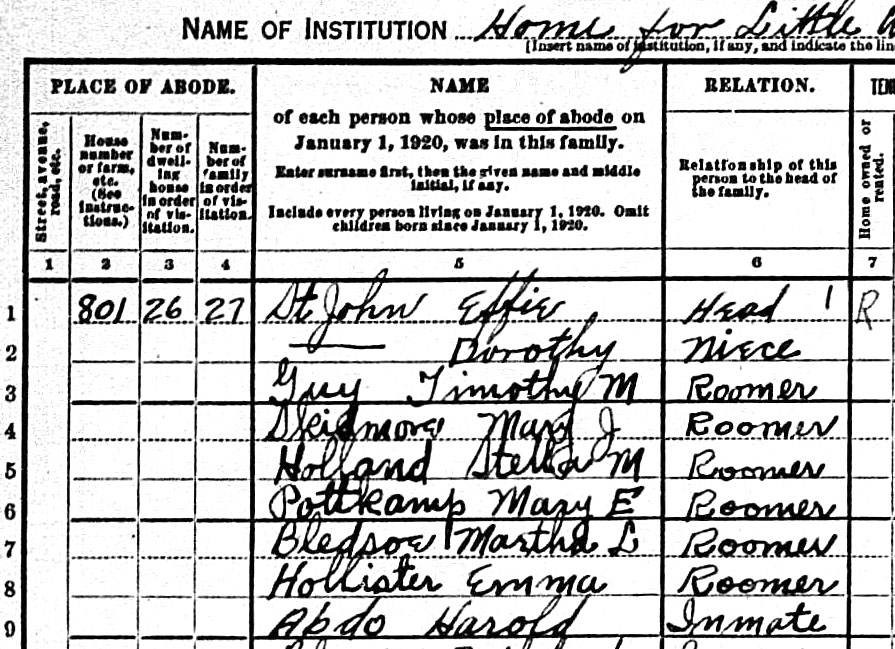 NAME OF INSTITUTION Home for Little
[Insert name of institution, if any, and indicate the lin
PLACE OF ABODE.
Street, avenue, road, etc.
House number or farm, etc. (See instructions.)
Number of dwelling house in order of visitation.
Number of family in order of visitation.
NAME
of each person whose place of abode on
January 1, 1920, was in this family.
Enter surname first, then the given name and middle
initial, if any.
Include every person living on January 1, 1920. Omit
children born since January 1, 1920.
RELATION.
Relationship of this
person to the head of
the family.
TEN
Home owned or rented.
1 2 3 4 5 6 7
1 801 26 27 St John Effie Head 1 R
2 —— Dorothy Niece
3 Guy Timothy M Roomer
4 Skidmore Mary J Roomer
5 Holland Stella M Roomer
6 Pottkamp Mary E Roomer
7 Bledsoe Martha L Roomer
8 Hollister Emma Roomer
9 Abdo Harold Inmate